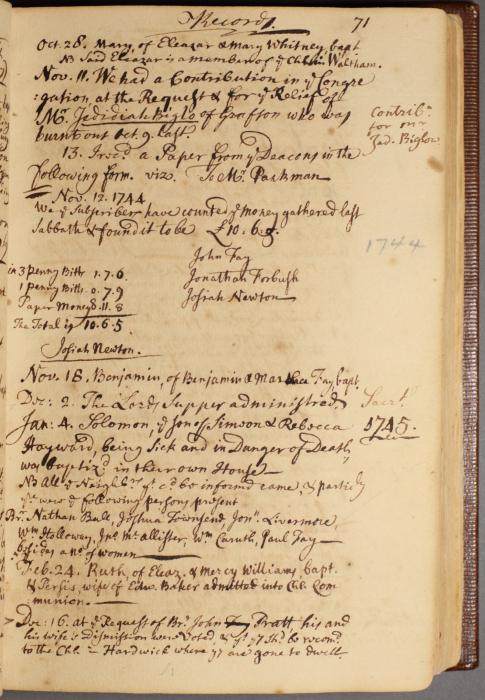 Records.
71
Oct. 28. Mary, of Eleazar & Mary Whitney, bapt.
NB Said Eleazar is a member of ye Chh in Waltham.
Nov. 11. We had a Contribution in ye Congre
:gation, at the Request & for ye Relief of
Mr. Jedidiah Biglo of Grafton who was
burnt out Oct. 9. last.
Contribn.
for mr
Jed. Biglow
13. Irecd a Paper from ye Deacons in the
following form. viz. To Mr. Parkman
Nov. 12. 1744
We ye Subscribers have counted ye money gathered last
Sabbath & found it to be £10. 6. 5.
1744
John Fay
Jonathan Forbush
Josiah Newton
in 3 penny Bills 1. 7. 6.
1 penny Bills. 0. 7. 9
Paper Money 8. 11. 8
The Total is 10. 6. 5
Josiah Newton.
Nov. 18. Benjamin, of Benjamin & Martha Fay, bapt.
Dec: 2. The Lords Supper administred.
Sacrt.
Jan: 4. Solomon, of Simeon & Rebecca
1745.
Hayward, being Sick and in Danger of Death,
was baptiz'd in their own House
NB All ye Neighbrs yt cd be informd came, & particly
yr were ye following persons present
Br. Nathan Ball, Joshua Townsend, Jonn. Livermore,
Wm Holloway, Jno. McAllister, Wm Caruth, Paul Fay
besides a no. of women
Feb. 24. Ruth, of Eleaz. & Mercy Williams bapt.
& Persis, wife of Edw. Baker admitted into Chh Com
munion.
Dec: 16. at ye Request of Br. John Pratt his and
his wife's Dismission were Voted & yt yy shd be recomd
to the Chh in Hardwick where yy are gone to dwell.